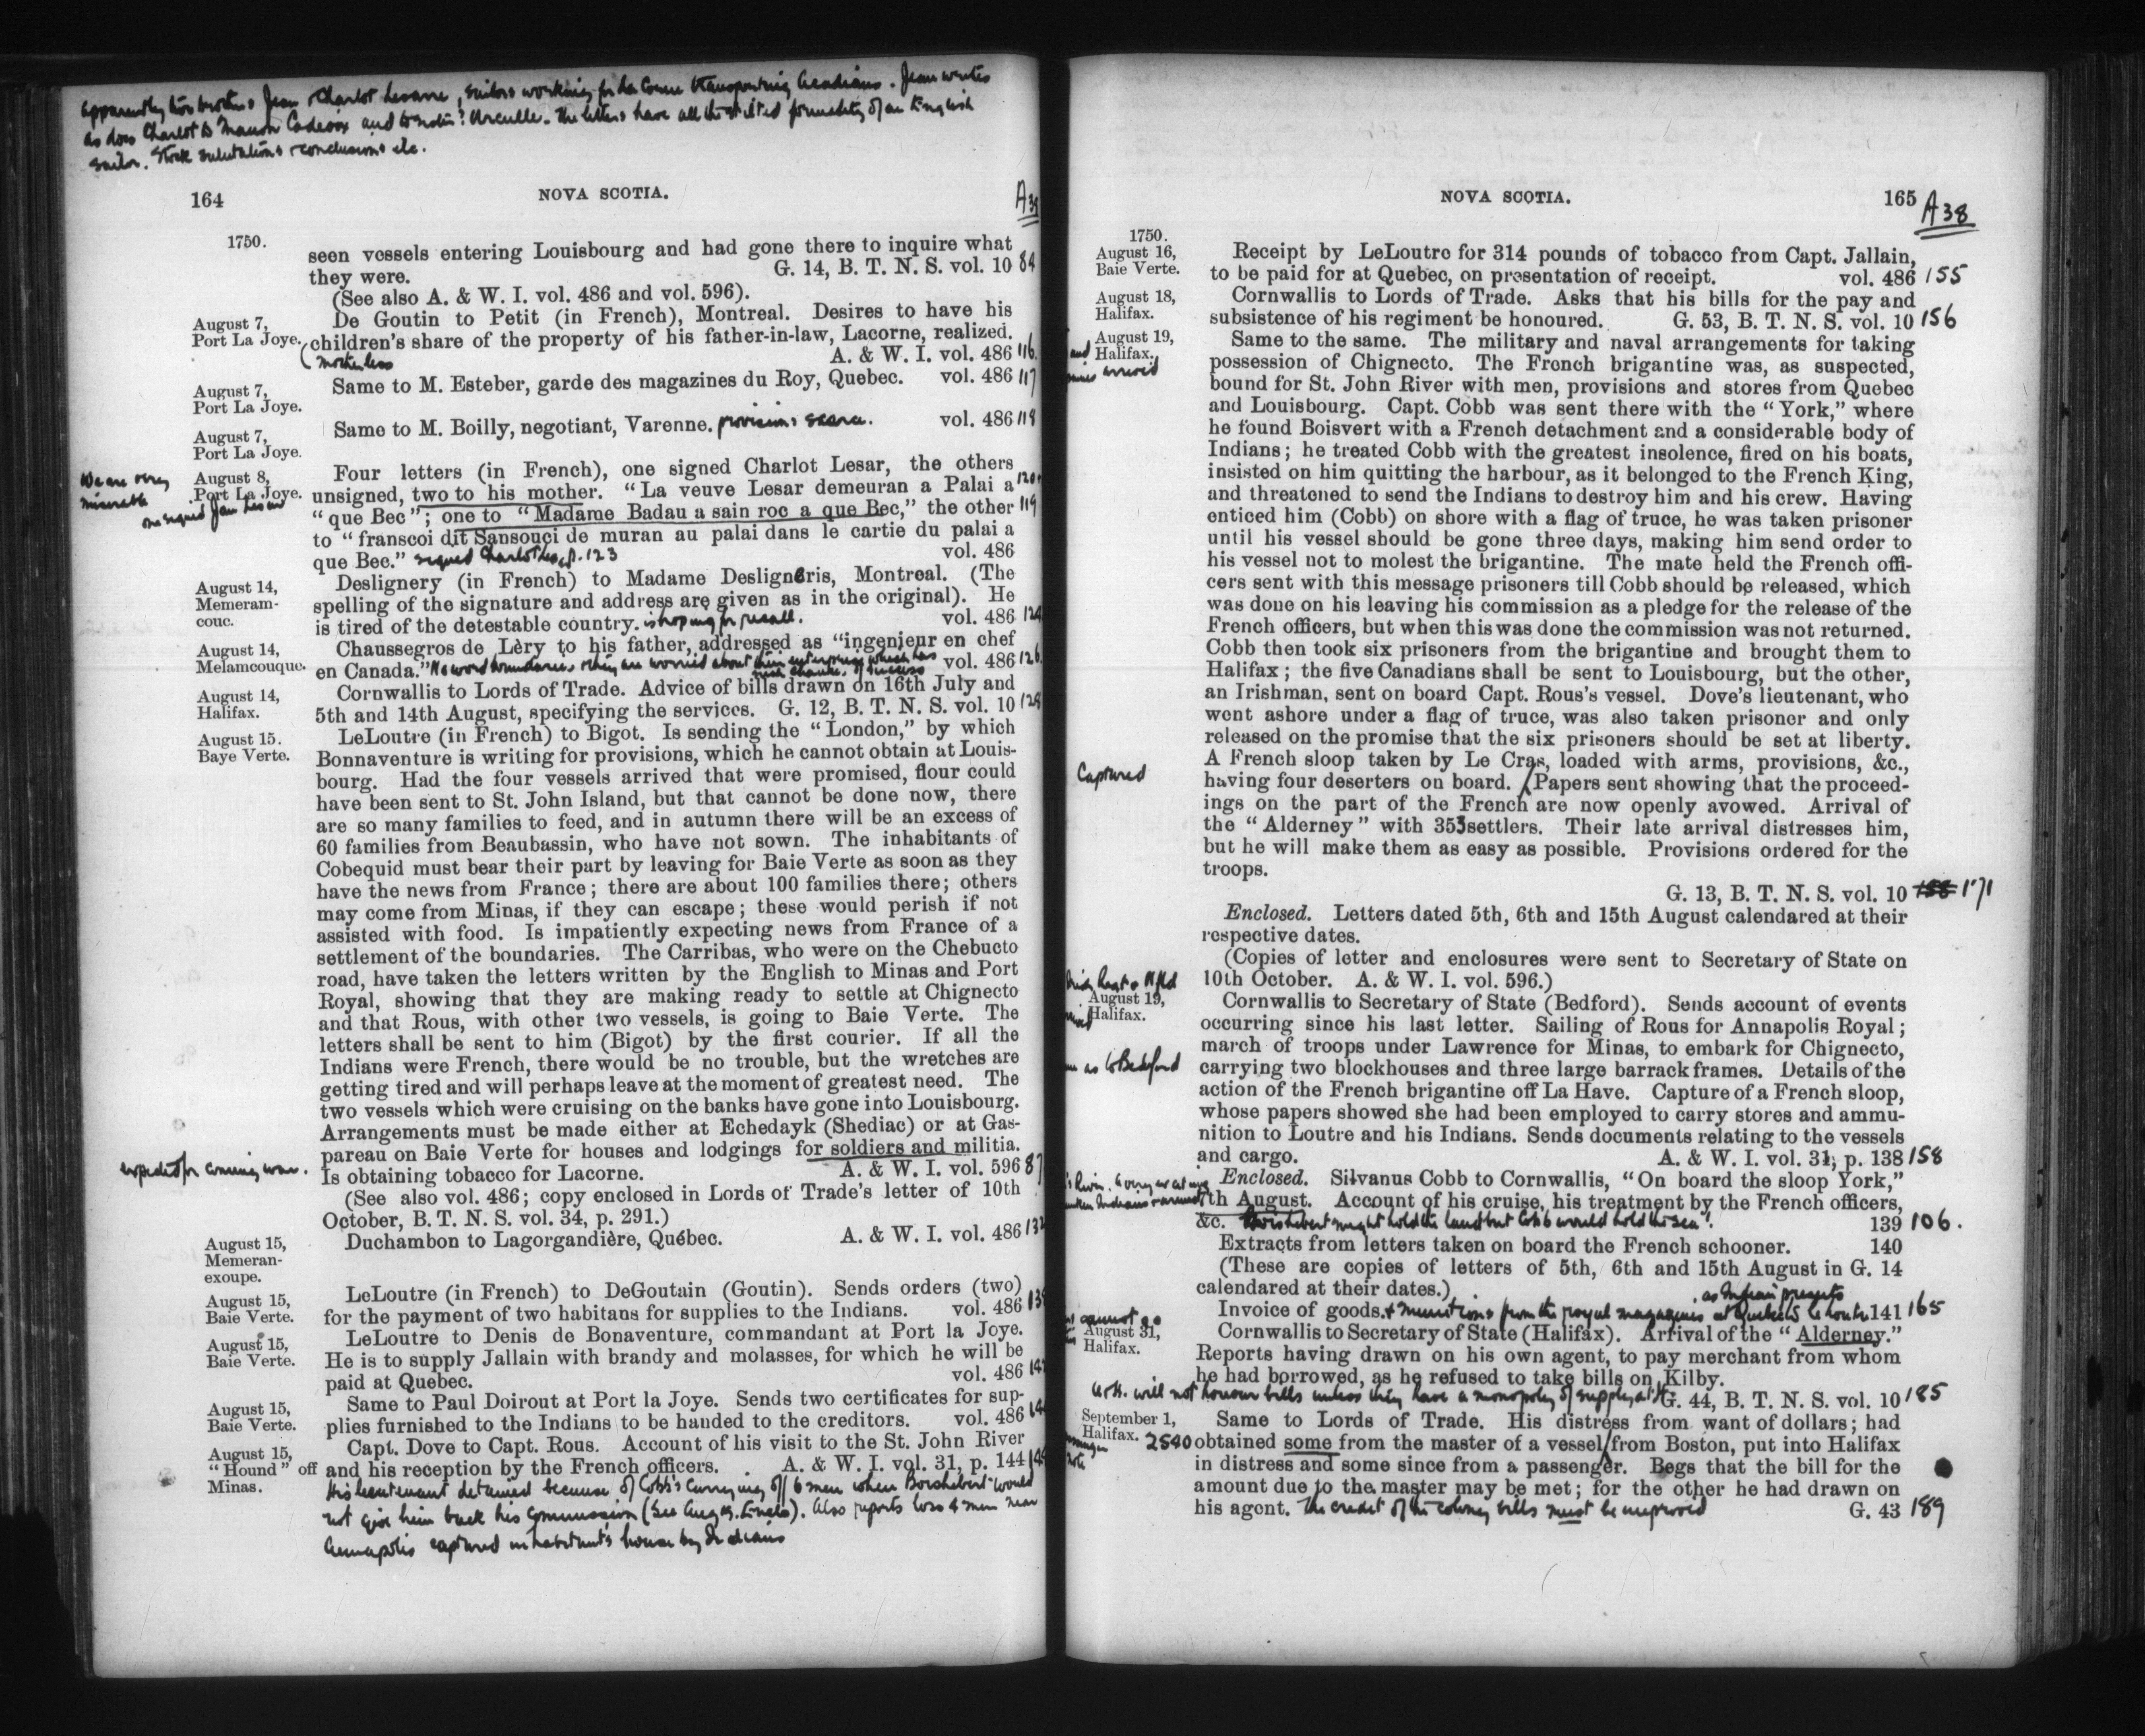 apparently two brothers Jean & Charlot Lesarre, sailors working for La Corne transporting Acadians. Jean writes
as does Charlot to Manon Cadeoix and to The letters have all the stilted formality of an English
sailor. Stock salutations & conclusions etc.
164 NOVA SCOTIA. A38
1750.
seen vessels entering Louisbourg and had gone there to inquire what
they were. G. 14, B. T. N. S. vol. 10 84
(See also A. & W. I. vol. 486 and vol. 596).
August 7, Port La Joye.
De Goutin to Petit (in French), Montreal. Desires to have his
children's share of the property of his father-in-law, Lacorne, realized.
(motherless A. & W. I. vol. 486 116.
August 7, Port La Joye.
Same to M. Esteber, garde des magazines du Roy, Quebec. vol. 486 117
August 7, Port La Joye.
Same to M. Boilly, negotiant, Varenne. provisions scarce. vol. 486 118
We are very
miserable
August 8, Port La Joye.
one signed Jean Lesard
Four letters (in French), one signed Charlot Lesar, the others
unsigned, two to his mother. “La veuve Lesar demeuran a Palai a 120
“que Bec”; one to “Madame Badau a sain roc a que Bec,” the other 119
to “franscoi dit Sansouci de muran au palai dans le cartie du palai a
que Bec.” signed Charlot p. 123 vol. 486
August 14, Memeram-
couc.
Deslignery (in French) to Madame Deslignèris, Montreal. (The
spelling of the signature and address are given as in the original). He
is tired of the detestable country. is hoping for recall. vol. 486 124
August 14, Melamcouque.
Chaussegros de Lèry to his father, addressed as “ingenieur en chef
en Canada.” No word boundaries. They are worried about their enterprise which has vol. 486 126.
such chance of success
August 14, Halifax.
Cornwallis to Lords of Trade. Advice of bills drawn on 16th July and
5th and 14th August, specifying the services. G. 12, B. T. N. S. vol. 10 128
August 15. Baye Verte.
LeLoutre (in French) to Bigot. Is sending the “London,” by which
Bonnaventure is writing for provisions, which he cannot obtain at Louis-
bourg. Had the four vessels arrived that were promised, flour could
have been sent to St. John Island, but that cannot be done now, there
are so many families to feed, and in autumn there will be an excess of
60 families from Beaubassin, who have not sown. The inhabitants of
Cobequid must bear their part by leaving for Baie Verte as soon as they
have the news from France; there are about 100 families there; others
may come from Minas, if they can escape; these would perish if not
assisted with food. Is impatiently expecting news from France of a
settlement of the boundaries. The Carribas, who were on the Chebucto
road, have taken the letters written by the English to Minas and Port
Royal, showing that they are making ready to settle at Chignecto
and that Rous, with other two vessels, is going to Baie Verte. The
letters shall be sent to him (Bigot) by the first courier. If all the
Indians were French, there would be no trouble, but the wretches are
getting tired and will perhaps leave at the moment of greatest need. The
two vessels which were cruising on the banks have gone into Louisbourg.
Arrangements must be made either at Echedayk (Shediac) or at Gas-
pareau on Baie Verte for houses and lodgings for soldiers and militia.
expected for coming war. Is obtaining tobacco for Lacorne. A. & W. I. vol. 596 87
(See also vol. 486; copy enclosed in Lords of Trade's letter of 10th
October, B. T. N. S. vol. 34, p. 291.)
August 15, Memeran-
exoupe.
Duchambon to Lagorgandière, Québec. A. & W. I. vol. 486 132
August 15, Baie Verte.
LeLoutre (in French) to DeGoutain (Goutin). Sends orders (two)
for the payment of two habitans for supplies to the Indians. vol. 486
August 15, Baie Verte.
LeLoutre to Denis de Bonaventure, commandant at Port la Joye.
He is to supply Jallain with brandy and molasses, for which he will be
paid at Quebec. vol. 486
August 15, Baie Verte.
Same to Paul Doirout at Port la Joye. Sends two certificates for sup-
plies furnished to the Indians to be handed to the creditors. vol. 486
August 15, “Hound” off
Minas.
Capt. Dove to Capt. Rous. Account of his visit to the St. John River
and his reception by the French officers. A. & W. I. vol. 31, p. 144
His lieutenant detained because of Cobb's carrying off 6 men when Boishebert would
not give him back his commission (See Aug 19. Encls). Also reports loss 4 men near
Annapolis captured inhabitants house by Indians
NOVA SCOTIA. 165 A38
1750.
August 16, Baie Verte.
Receipt by LeLoutre for 314 pounds of tobacco from Capt. Jallain,
to be paid for at Quebec, on presentation of receipt. vol. 486 155
August 18, Halifax.
Cornwallis to Lords of Trade. Asks that his bills for the pay and
subsistence of his regiment be honoured. G. 53, B. T. N. S. vol. 10 156
August 19, Halifax.
and
arrived
Same to the same. The military and naval arrangements for taking
possession of Chignecto. The French brigantine was, as suspected,
bound for St. John River with men, provisions and stores from Quebec
and Louisbourg. Capt. Cobb was sent there with the “York,” where
he found Boisvert with a French detachment and a considerable body of
Indians; he treated Cobb with the greatest insolence, fired on his boats,
insisted on him quitting the harbour, as it belonged to the French King,
and threatened to send the Indians to destroy him and his crew. Having
enticed him (Cobb) on shore with a flag of truce, he was taken prisoner
until his vessel should be gone three days, making him send order to
his vessel not to molest the brigantine. The mate held the French offi-
cers sent with this message prisoners till Cobb should be released, which
was done on his leaving his commission as a pledge for the release of the
French officers, but when this was done the commission was not returned.
Cobb then took six prisoners from the brigantine and brought them to
Halifax; the five Canadians shall be sent to Louisbourg, but the other,
an Irishman, sent on board Capt. Rous's vessel. Dove's lieutenant, who
went ashore under a flag of truce, was also taken prisoner and only
released on the promise that the six prisoners should be set at liberty.
A French sloop taken by Le Cras, loaded with arms, provisions, &c.,
Captured having four deserters on board. Papers sent showing that the proceed-
ings on the part of the French are now openly avowed. Arrival of
the “Alderney” with 353 settlers. Their late arrival distresses him,
but he will make them as easy as possible. Provisions ordered for the
troops.
G. 13, B. T. N. S. vol. 10 158 171
Enclosed. Letters dated 5th, 6th and 15th August calendared at their
respective dates.
(Copies of letter and enclosures were sent to Secretary of State on
10th October. A. & W. I. vol. 596.)
August 19, Halifax.
Cornwallis to Secretary of State (Bedford). Sends account of events
occurring since his last letter. Sailing of Rous for Annapolis Royal;
march of troops under Lawrence for Minas, to embark for Chignecto,
as to Bedford carrying two blockhouses and three large barrack frames. Details of the
action of the French brigantine off La Have. Capture of a French sloop,
whose papers showed she had been employed to carry stores and ammu-
nition to Loutre and his Indians. Sends documents relating to the vessels
and cargo. A. & W. I. vol. 31, p. 138 158
Enclosed. Silvanus Cobb to Cornwallis, “On board the sloop York,”
7th August. Account of his cruise, his treatment by the French officers,
&c. Boishebert might hold the land but Cobb would hold the sea! 139 106.
Extracts from letters taken on board the French schooner. 140
(These are copies of letters of 5th, 6th and 15th August in G. 14
calendared at their dates.) as Indian presents
Invoice of goods. & munitions from the royal magazines at Quebec to LeLoutre 141 165
cannot go
August 31, Halifax.
Cornwallis to Secretary of State (Halifax). Arrival of the “Alderney.”
Reports having drawn on his own agent, to pay merchant from whom
he had borrowed, as he refused to take bills on Kilby.
will not honour bills unless they have a monopoly of supply at G. 44, B. T. N. S. vol. 10 185
September 1, Halifax.
Same to Lords of Trade. His distress from want of dollars; had
2540 obtained some from the master of a vessel from Boston, put into Halifax
in distress and some since from a passenger. Begs that the bill for the
amount due to the master may be met; for the other he had drawn on
his agent. The credit of the colony bills must be improved G. 43 189